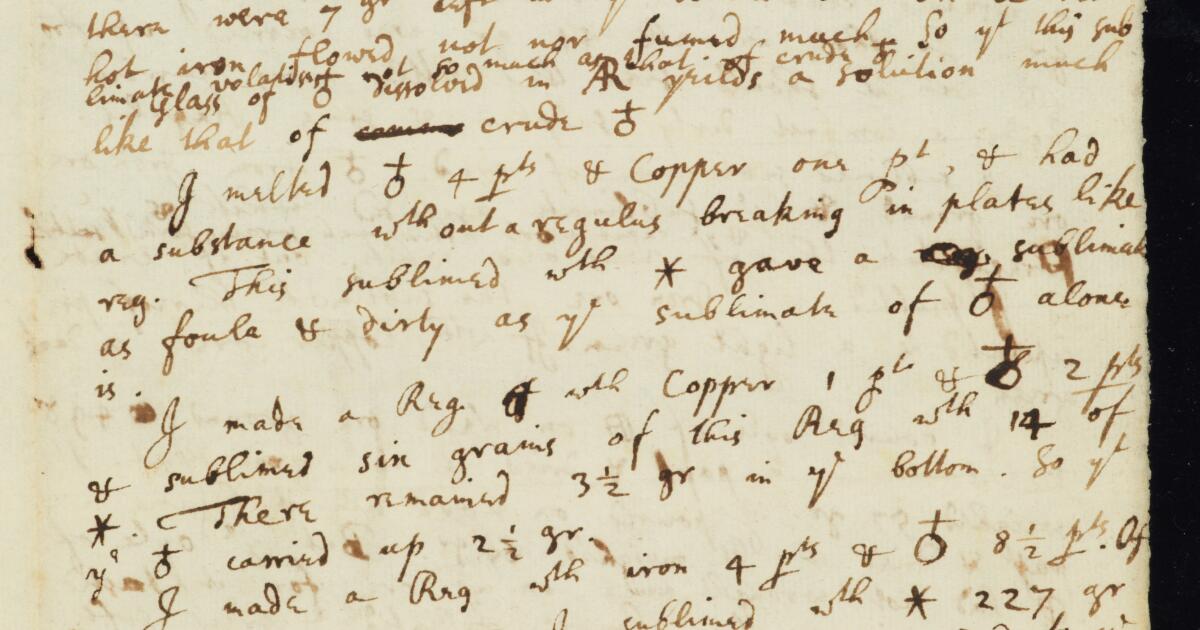 there were 7 gr left in
hot iron flowed not nor fumed much. So yt this sub
limate volatises not so much as that of crude ♁
Glass of ♁ dissolved in ÆR yeilds a solution much
like that of crude ♁
I melted ♁ 4 pts & Copper one pt, & had
a substance wthout a regulus breaking in plates like
reg. This sublimed wth * gave a sublimate
as foule & dirty as ye sublimate of ♁ alone
is.
I made a Reg wth Copper 1 pt & ♁ 2 pts
& sublimed six grains of this Reg wth 14 of
*. There remained 3½ gr in ye bottom. So yt
ye ♁ carried up 2½ gr.
I made a Reg wth iron 4 pts & ♁ 8½ pts. Of
sublimed wth * 227 gr